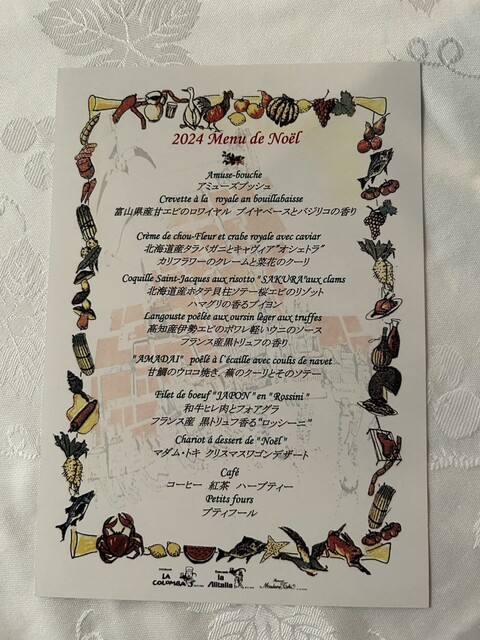 2024 Menu de Noël
Amuse-bouche
アミューズブッシュ
Crevette à la royale an bouillabaisse
富山県産甘エビのロワイヤル ブイヤベースとバジリコの香り
Crème de chou-Fleur et crabe royale avec caviar
北海道産タラバガニとキャヴィア"オシェトラ"
カリフラワーのクレームと菜花のクーリ
Coquille Saint-Jacques aux risotto "SAKURA"aux clams
北海道産ホタテ貝柱ソテー桜エビのリゾット
ハマグリの香るブイヨン
Langouste poêlée aux oursin lèger aux truffes
高知産伊勢エビのポワレ軽いウニのソース
フランス産黒トリュフの香り
"AMADAI" poêlè à l écaille avec coulis de navet
甘鯛のウロコ焼き、蕪のクーリとそのソテー
Filet de boeuf "JAPON" en " Rossini "
和牛ヒレ肉とフォアグラ
フランス産 黒トリュフ香る"ロッシーニ"
Chariot à dessert de "Noël"
マダム・トキ クリスマスワゴンデザート
Café
コーヒー 紅茶 ハーブティー
Petits fours
プティフール
LA COLOMBA
la Alitalia